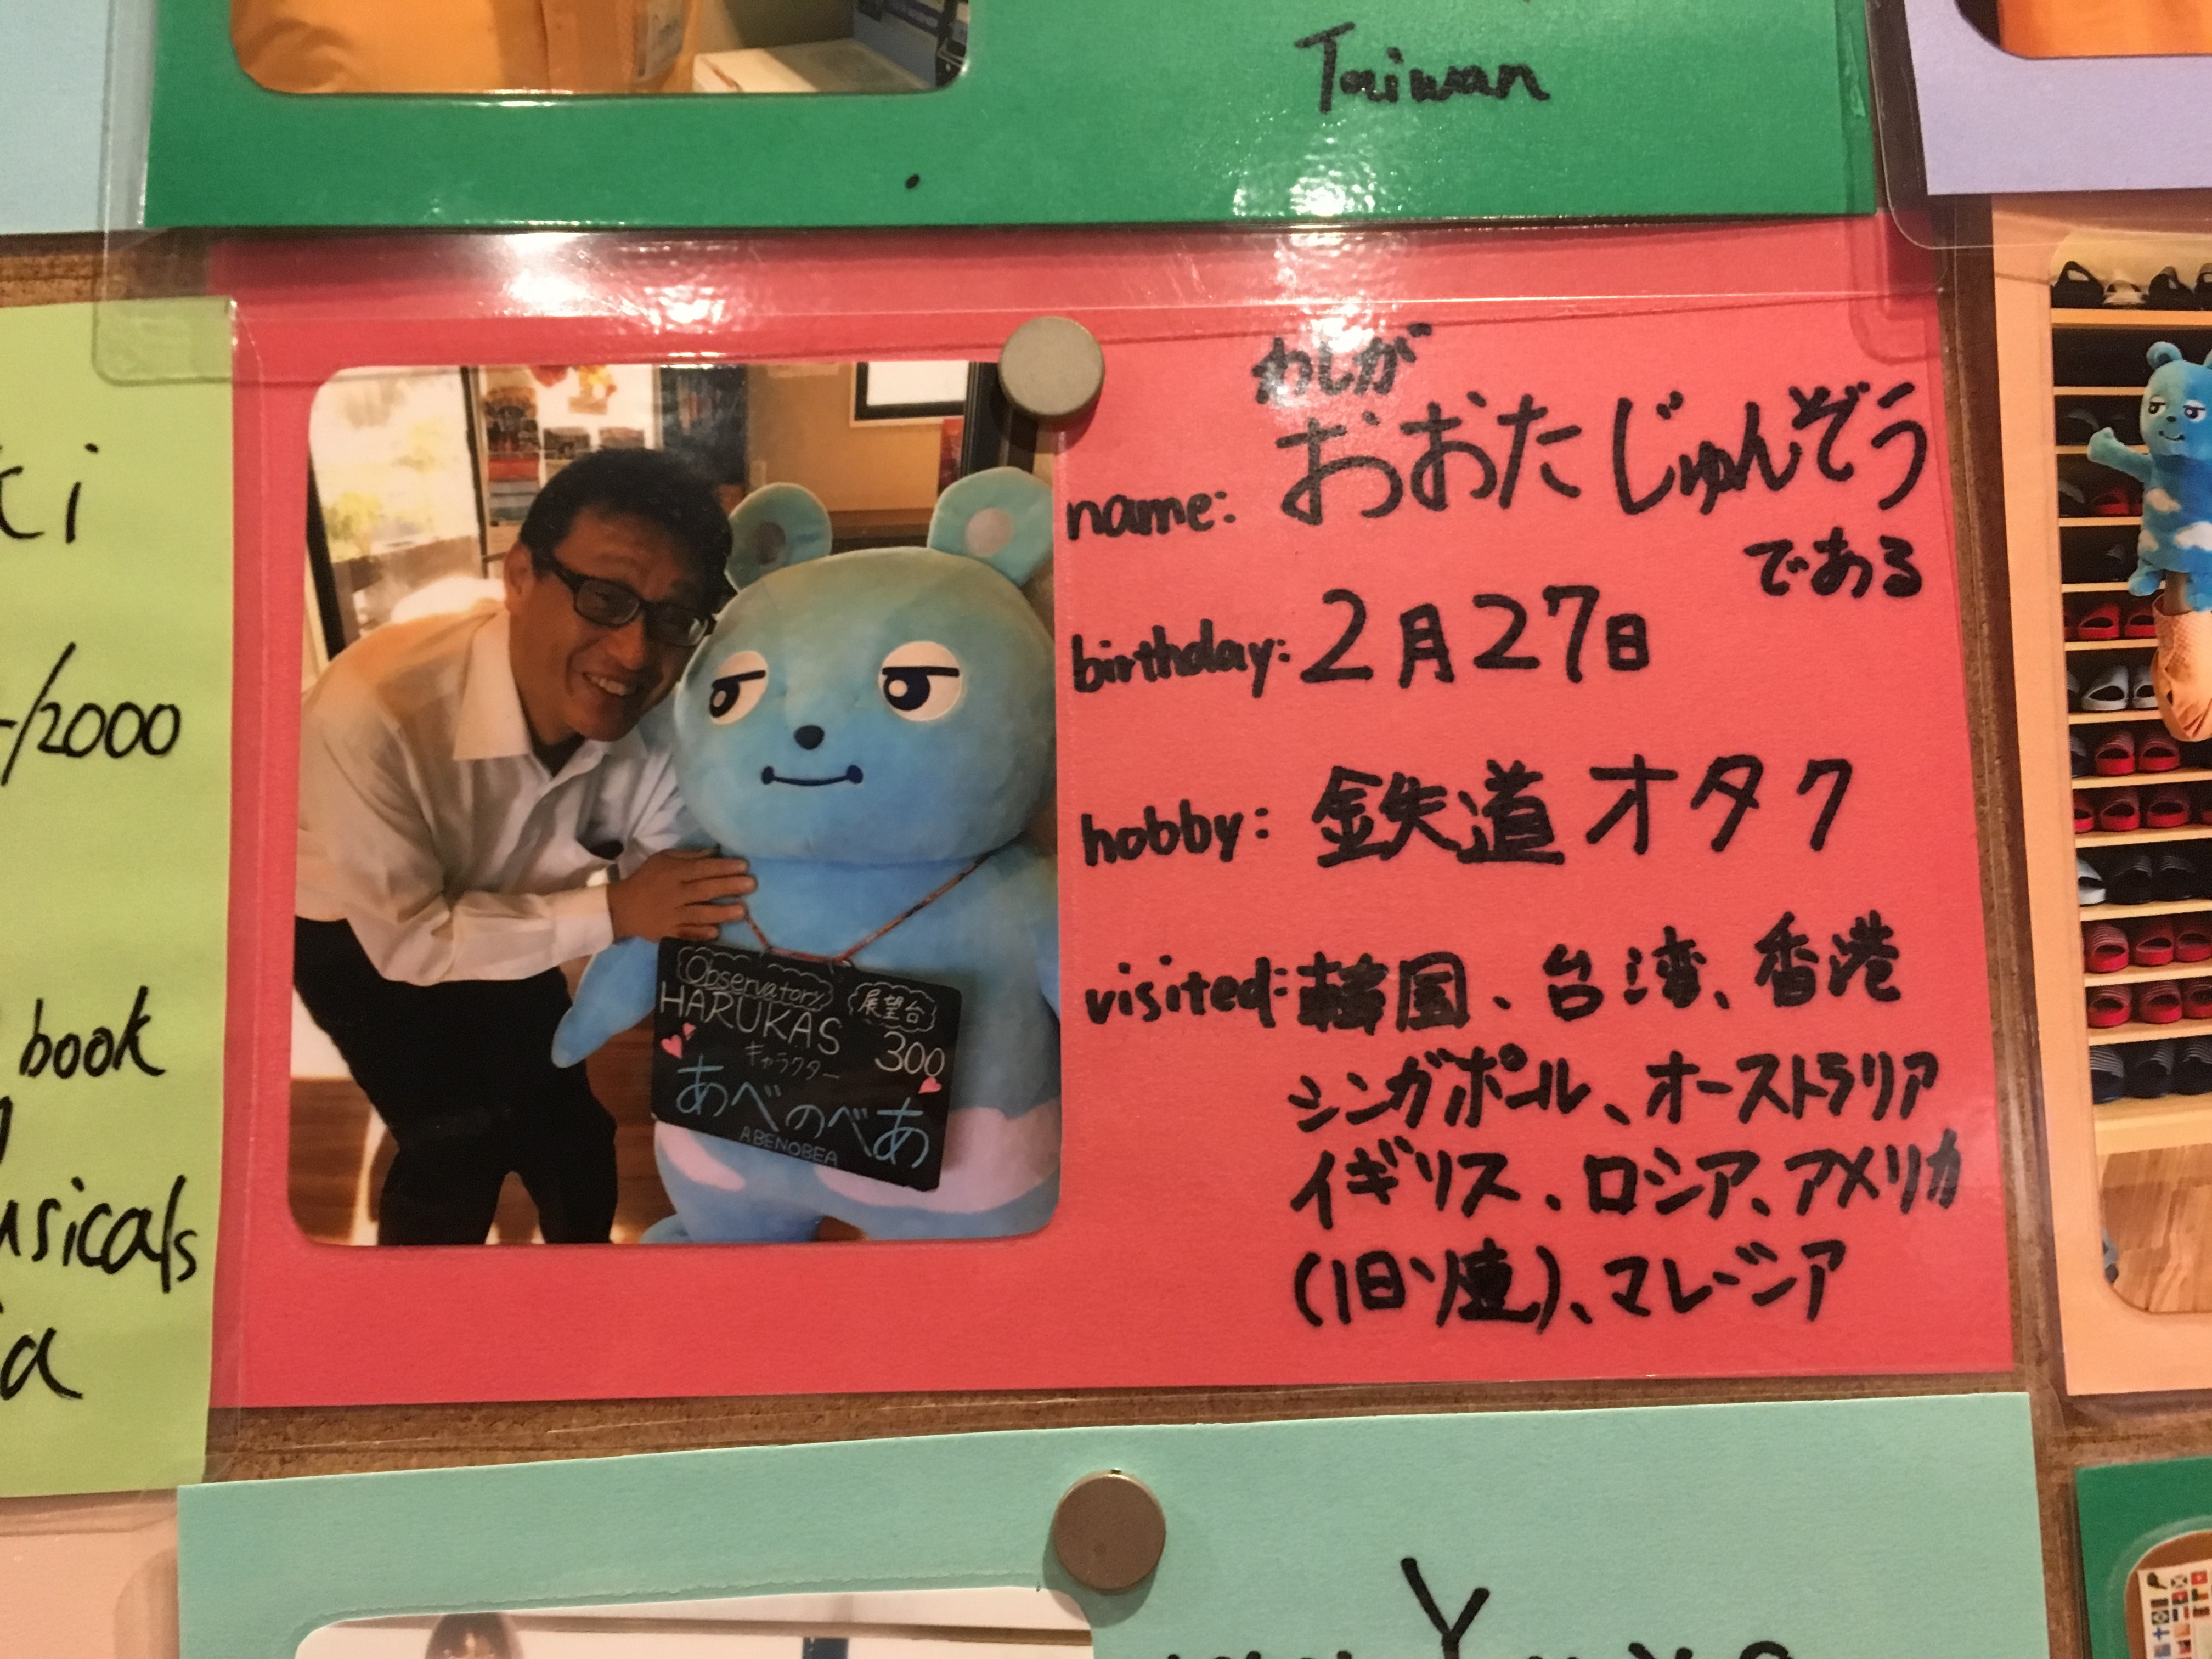 Taiwan
ki
/2000
book
usicals
a
わしが
name: おおたじゅんぞう
である
birthday: 2月27日
hobby: 鉄道オタク
visited: 韓国、台湾、香港
シンガポール、オーストラリア
イギリス、ロシア、アメリカ
(旧ソ連)、マレーシア
Observatory 展望台
HARUKAS 300
キャラクター
あべのべあ
ABENOBEA